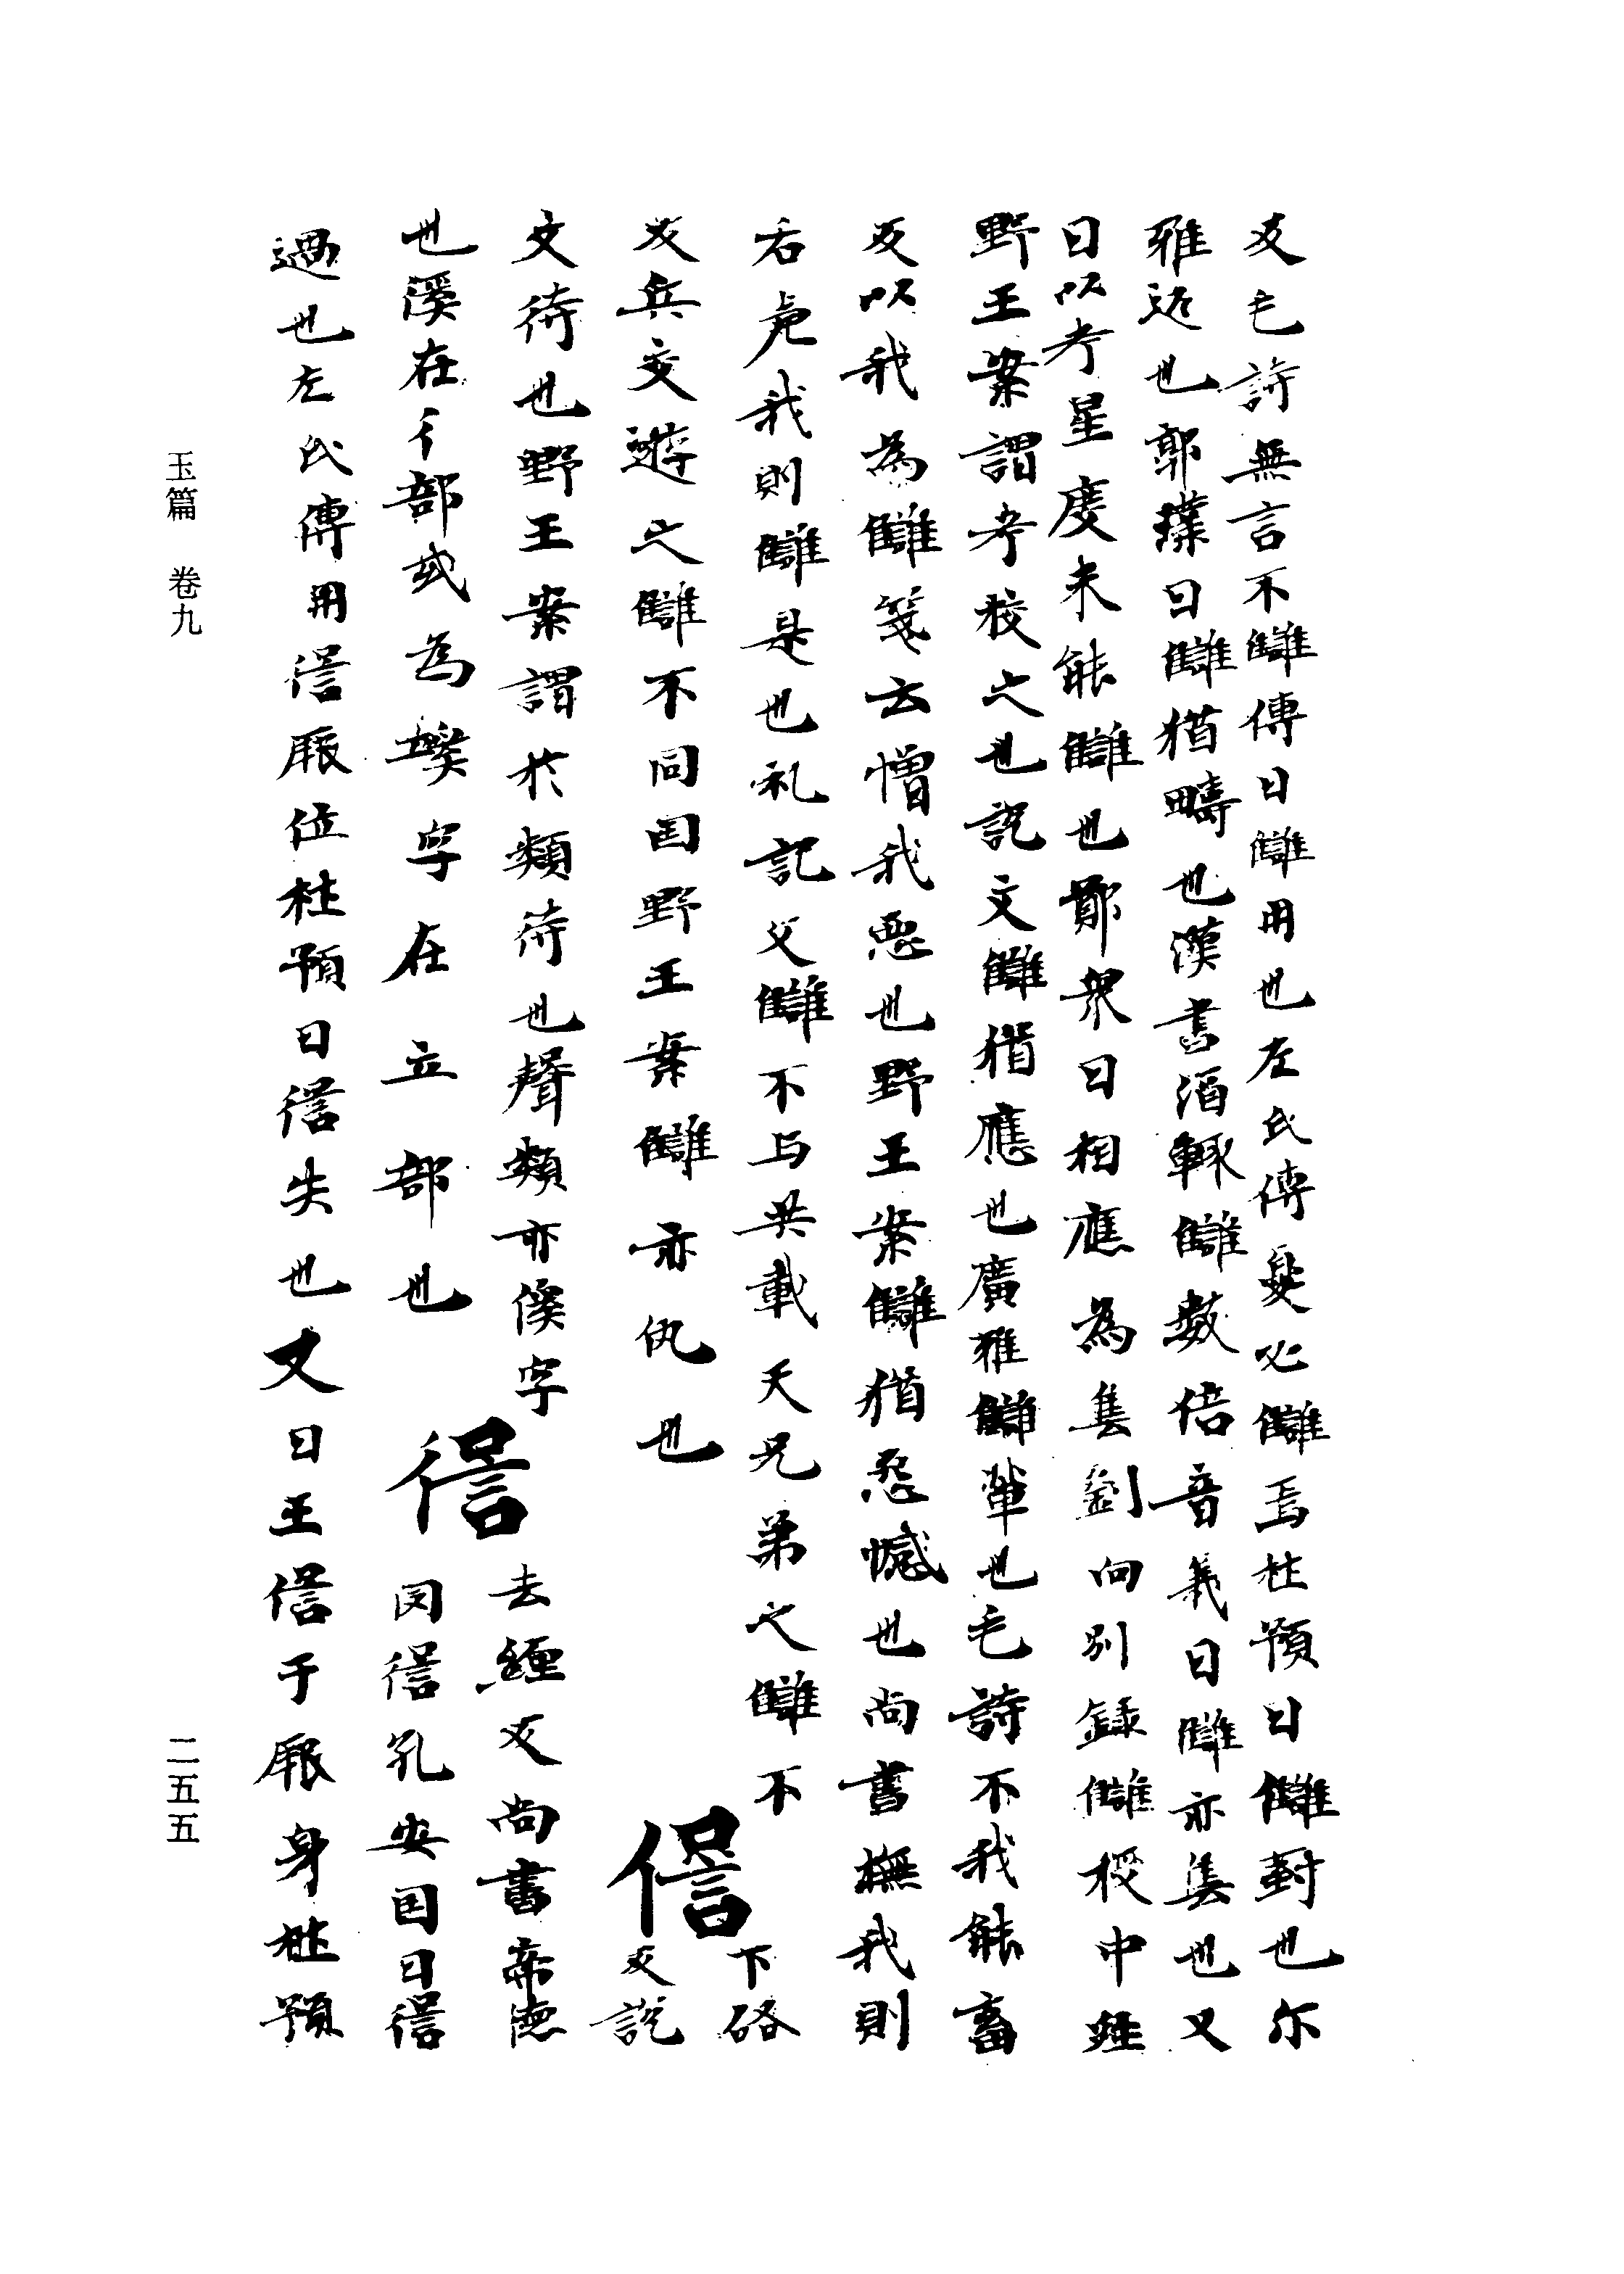 反毛詩無言不讎傳曰讎用也左氏傳憂必讎焉杜預曰讎對也尓
雅讎疋也郭璞曰讎猶疇也漢書酒輙讎數倍音義曰讎亦售也又
曰以考星度未能讎也鄭衆曰相應為售劉向別錄讎挍中經
野王案謂考校之也說文讎猶應也廣雅讎輩也毛詩不我能畜
反以我為讎箋云憎我惡也野王案讎猶惡憾也尚書撫我則
后虐我則讎是也礼記父讎不与共載天兄弟之讎不
反兵交遊之讎不同国野王案讎亦仇也
儅下硌反說
文待也野王案謂於類待也聲類亦傒字
也溪在彳部或為䜁字在立部也
𠎝去䋲反尚書帝德
罔𠎝孔安国曰𠎝
過也左氏傳用𠎝厥位杜預曰𠎝失也又曰王𠎝于厥身杜預
玉篇 卷九
二五五